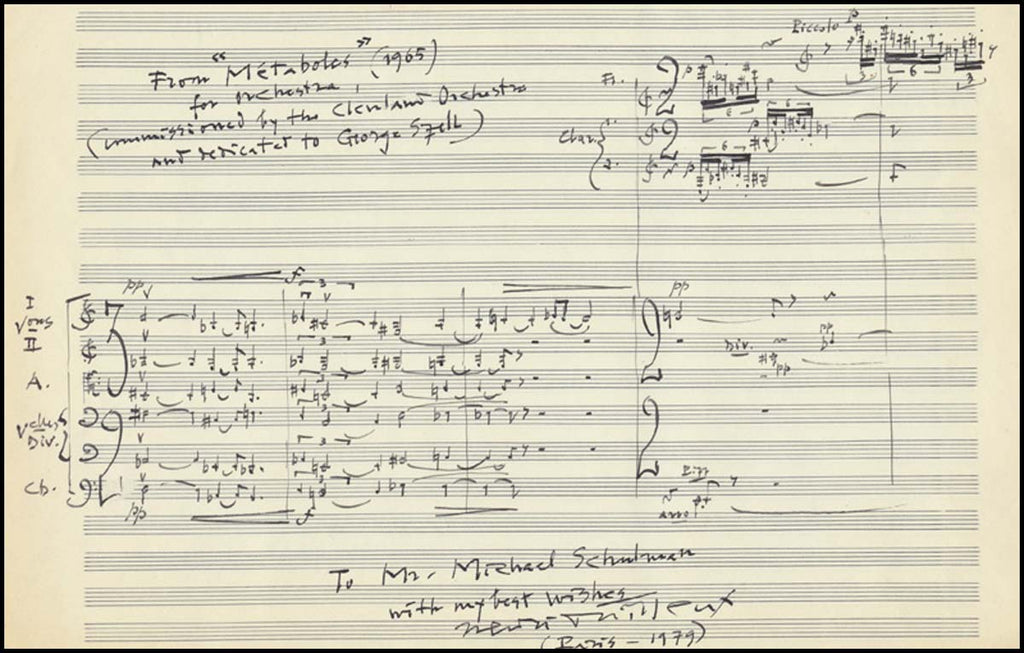 From "Métaboles" (1965)
for orchestra,
(commissioned by the Cleveland Orchestra
and dedicated to George Szell)
Piccolo p
Fl. p p
Clar. 1.
2. p
6 6 6 3 6 3
pp f 3 pp
I
Vons
II
Div.
pp
pp
A.
Vcelles
Div.
Cb.
Pizz
arco
pp f
3 3 3 3
To Mr. Michael Schulman
with my best wishes
Henri Dutilleux
(Paris - 1979)